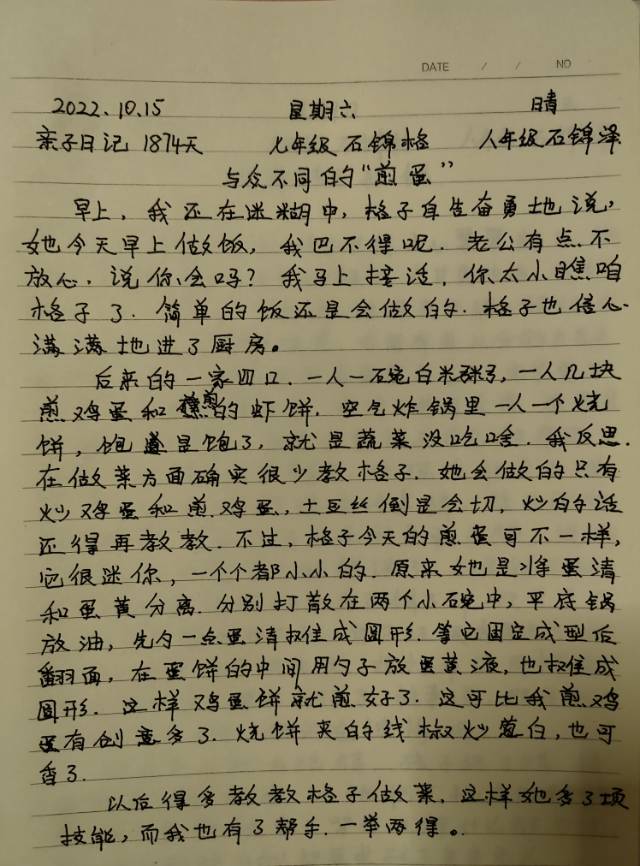 DATE / / NO
2022.10.15 星期六 晴
亲子日记 1874天 七年级 石锦格 八年级 石锦泽
与众不同的“煎蛋”
早上，我还在迷糊中，格子自告奋勇地说，
她今天早上做饭，我巴不得呢．老公有点不
放心，说你会吗？我马上接话，你太小瞧咱
格子了．简单的饭还是会做的．格子也信心
满满地进了厨房。
后来的一家四口．一人一碗白米粥，一人几块
煎鸡蛋和煎的虾饼．空气炸锅里一人一个烧
饼，饱是饱了，就是蔬菜没吃啥．我反思．
在做菜方面确实很少教格子．她会做的只有
炒鸡蛋和煎鸡蛋，土豆丝倒是会切，炒的话
还得再教教．不过，格子今天的煎蛋可不一样，
它很迷你，一个个都小小的．原来她是将蛋清
和蛋黄分离．分别打散在两个小碗中，平底锅
放油，先勺一点蛋清摊成圆形．等它固定成型后
翻面，在蛋饼的中间用勺子放蛋黄液，也摊成
圆形．这样鸡蛋饼就煎好了．这可比我煎鸡
蛋有创意多了．烧饼夹的线椒炒葱白，也可
香了．
以后得多教教格子做菜．这样她多了项
技能，而我也有了帮手．一举两得。